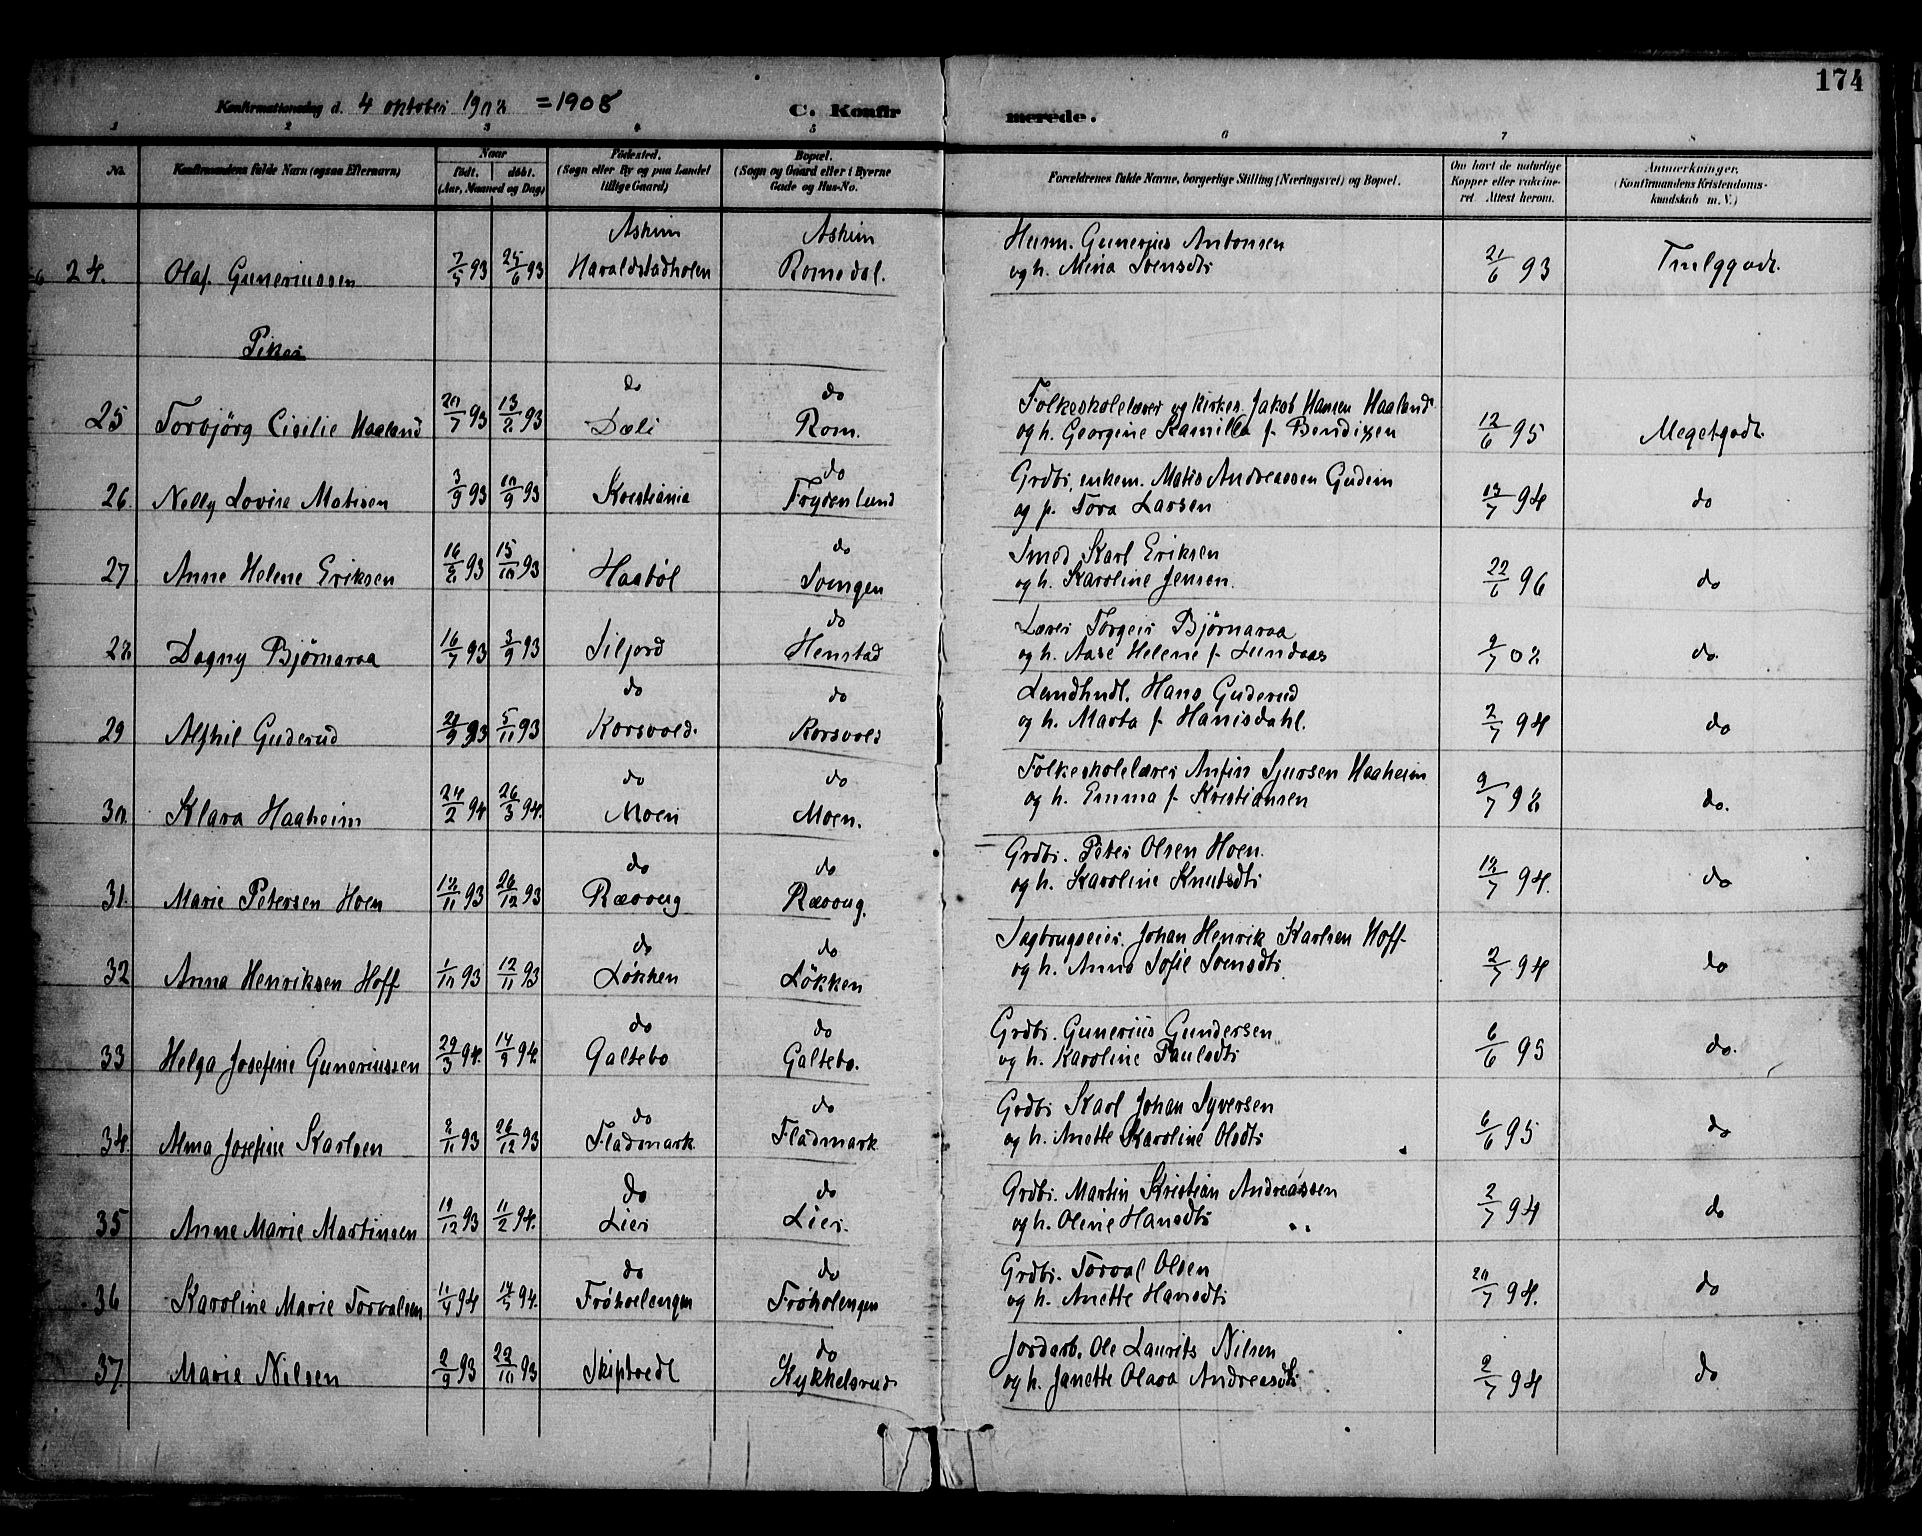 174
Konfirmationsdag d. 4 oktober 1908 = 1908 C. Konfirmerede.
1 2 3 4 5 6 7 8
No. Konfirmandens fulde Navn (ogsaa Efternavn) Naar født. døbt. (Aar, Maaned og Dag) Fødested. (Sogn eller By og paa Landet tillige Gaard) Bopæl. (Sogn og Gaard eller i Byerne Gade og Hus-No. Forældrenes fulde Navne, borgerlige Stilling (Næringsvei) og Bopæl. Om havt de naturlige Kopper eller vakcineret. Attest herom. Anmærkninger. (Konfirmandens Kristendomskundskab m. V.)
Askim Askim Husm. Gunerius Antonsen
24. Olaf Guneriussen 7/5 93 25/6 93 Haraldstadholen Romsdal. og h. Mina Svensdtr 21/6 93
Piker
do do Folkeskolelærer og kirkes. Jakob Hansen Haaland
25 Torbjørg Cicilie Haaland 20/7 93 13/2 93 Dæli Rom. og h. Georgine Kamilla f. Bendixen 12/6 95 Megetgodt.
do Grdbr. enkem. Matis Andreassen Gudim
26. Nelly Lovise Matisen 3/9 93 10/9 93 Kristiania Frydenlund og p. Tora Larsen 13/7 94 do
do Smed Karl Eriksen
27. Anne Helene Eriksen 16/2 93 15/10 93 Haabøl Svingen og h. Karoline Jensen. 22/6 96 do
do Lærer Torgeir Bjørnaraa
28. Dagny Bjørnaraa 16/7 93 3/9 93 Siljord Henstad og h. Aase Helene f. Lundaas 9/7 02 do.
do do Landhndl. Hans Guderud
29 Alfhil Guderud 20/9 93 5/11 93 Korsvold. Korsvold og h. Marta f. Hanisdahl. 2/7 94 do
do do Folkeskolelærer Anfin Sjursen Haaheim
30. Klara Haaheim 24/2 94 26/3 94. Moen Moen. og h. Emma f. Kristiansen 9/7 98 do.
do do Grdbr. Peter Olsen Hoen.
31. Marie Petersen Hoen 12/11 93 26/12 93 Rævoug Rævoug. og h. Karoline Knutsdtr 12/7 94. do
do do Sagbrugseier. Johan Henrik Karlsen Hoff
32 Anna Henriksen Hoff 1/10 93 12/11 93 Løkken Løkken og h. Anna Sofie Svensdtr. 2/7 94 do
do do Grdbr. Gunerius Gundersen
33 Helga Josefine Guneriussen 29/3 94. 14/9 94. Galtebo Galtebo. og h. Karoline Paulsdtr 6/6 95 do.
do do Grdbr Karl Johan Syversen
34. Alma Josefine Karlsen 2/11 93 26/12 93 Fladmark Fladmark og h. Anette Karoline Olsdtr 6/6 95 do
do do Grdbr. Martin Kristian Andreassen
35 Anne Marie Martinsen 10/12 93 11/2 94. Lier Lier. og h. Oline Hansdtr 2/7 94 do
do do Grdbr. Torval Olsen
36 Karoline Marie Torvalsen 11/4 94 14/5 94. Frøholengen Frøholengen og h. Anette Hansdtr 20/7 94. do
do Jordarb. Ole Laurits Nilsen
37. Marie Nilsen 2/9 93 22/10 93 Skiptvedt Kykkelsrud og h. Janette Olava Andreasdtr 2/7 94 do